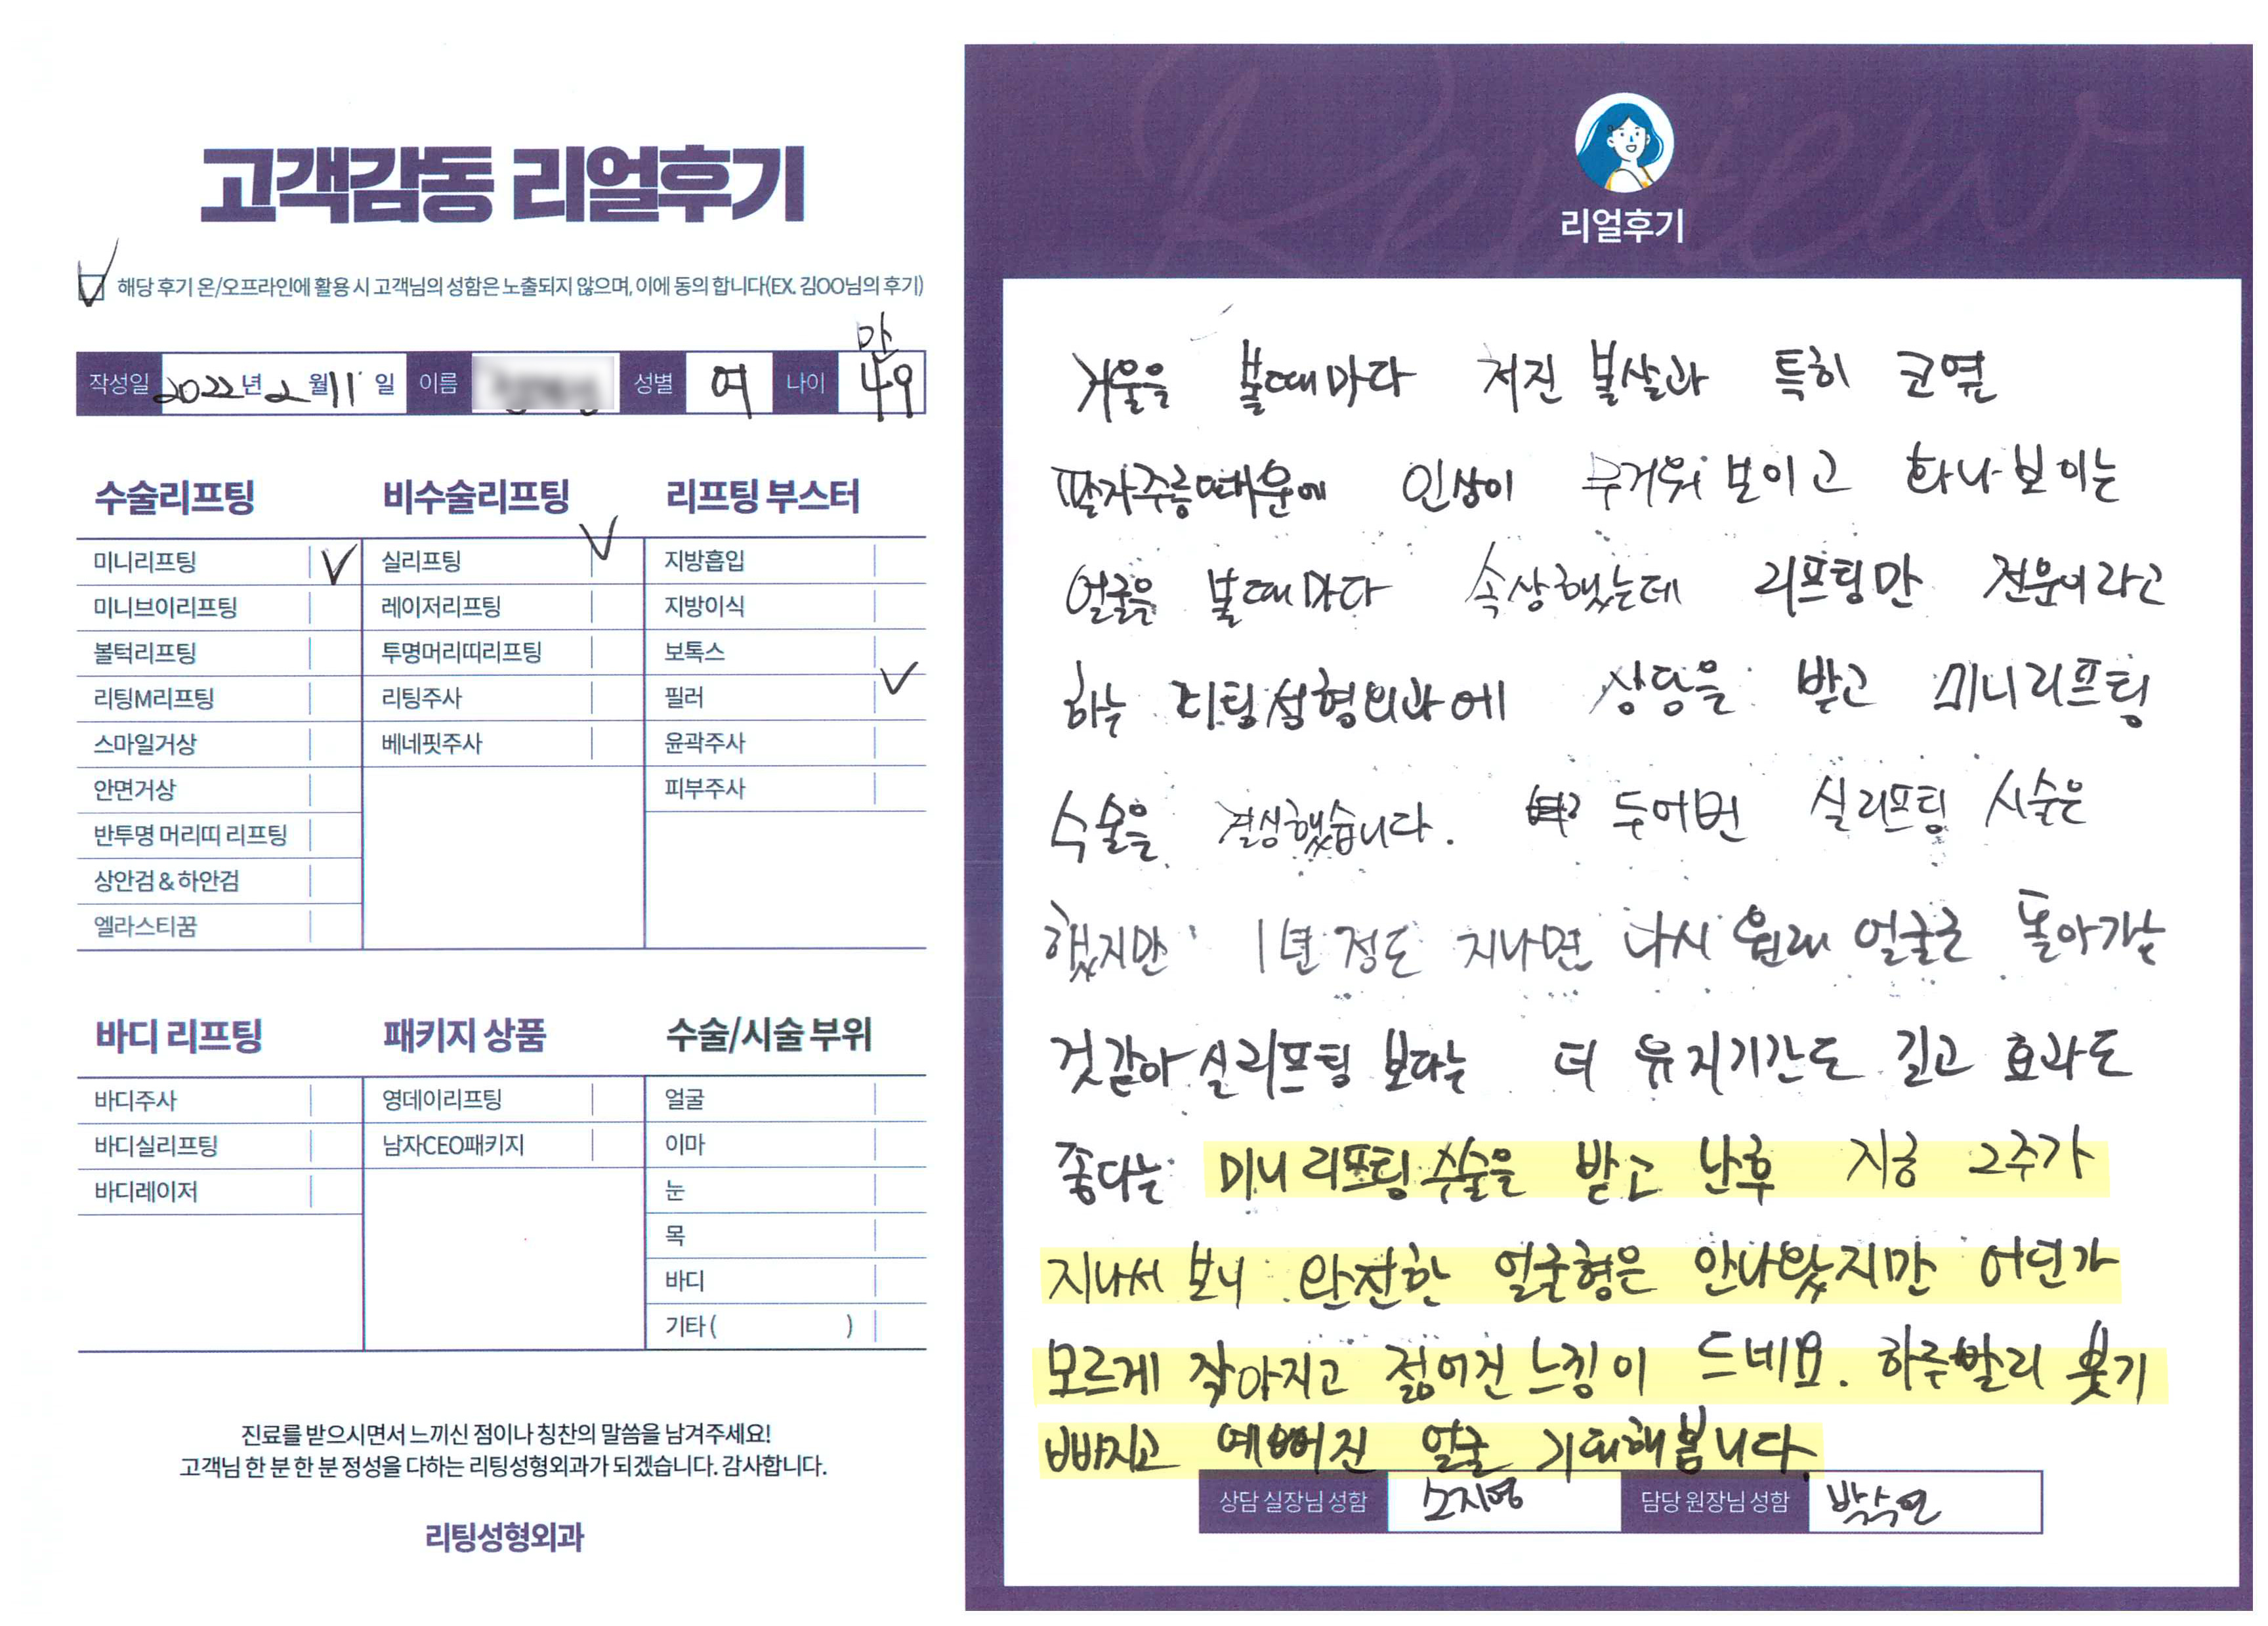 고객감동 리얼후기
해당 후기 온/오프라인에 활용 시 고객님의 성함은 노출되지 않으며, 이에 동의 합니다(EX. 김OO님의 후기)
작성일 2022년 2월 11일 이름 성별 여 나이 만 49
수술리프팅
미니리프팅
미니브이리프팅
볼턱리프팅
리팅M리프팅
스마일거상
안면거상
반투명 머리띠 리프팅
상안검 & 하안검
엘라스티꿈
비수술리프팅
실리프팅
레이저리프팅
투명머리띠리프팅
리팅주사
베네핏주사
리프팅 부스터
지방흡입
지방이식
보톡스
필러
윤곽주사
피부주사
바디 리프팅
바디주사
바디실리프팅
바디레이저
패키지 상품
영데이리프팅
남자CEO패키지
수술/시술 부위
얼굴
이마
눈
목
바디
기타 ( )
진료를 받으시면서 느끼신 점이나 칭찬의 말씀을 남겨주세요!
고객님 한 분 한 분 정성을 다하는 리팅성형외과가 되겠습니다. 감사합니다.
리팅성형외과
Review
리얼후기
거울을 볼때마다 처진 볼살과 특히 코옆
팔자주름때문에 인상이 무거워 보이고 화나보이는
얼굴을 볼때마다 속상했는데 리프팅만 전문이라고
하는 리팅성형외과에 상담을 받고 미니리프팅
수술을 결심했습니다. 두어번 실리프팅 시술은
했지만 1년정도 지나면 다시 원래 얼굴로 돌아가는
것같아 실리프팅 보다는 더 유지기간도 길고 효과도
좋다는 미니리프팅수술을 받고 난후 지금 2주가
지나서 보니 완전한 얼굴형은 안나왔지만 어딘가
모르게 작아지고 젊어진 느낌이 드네요. 하루빨리 붓기
빠지고 예뻐진 얼굴 기대해봅니다.
상담 실장님 성함 소지영 담당 원장님 성함